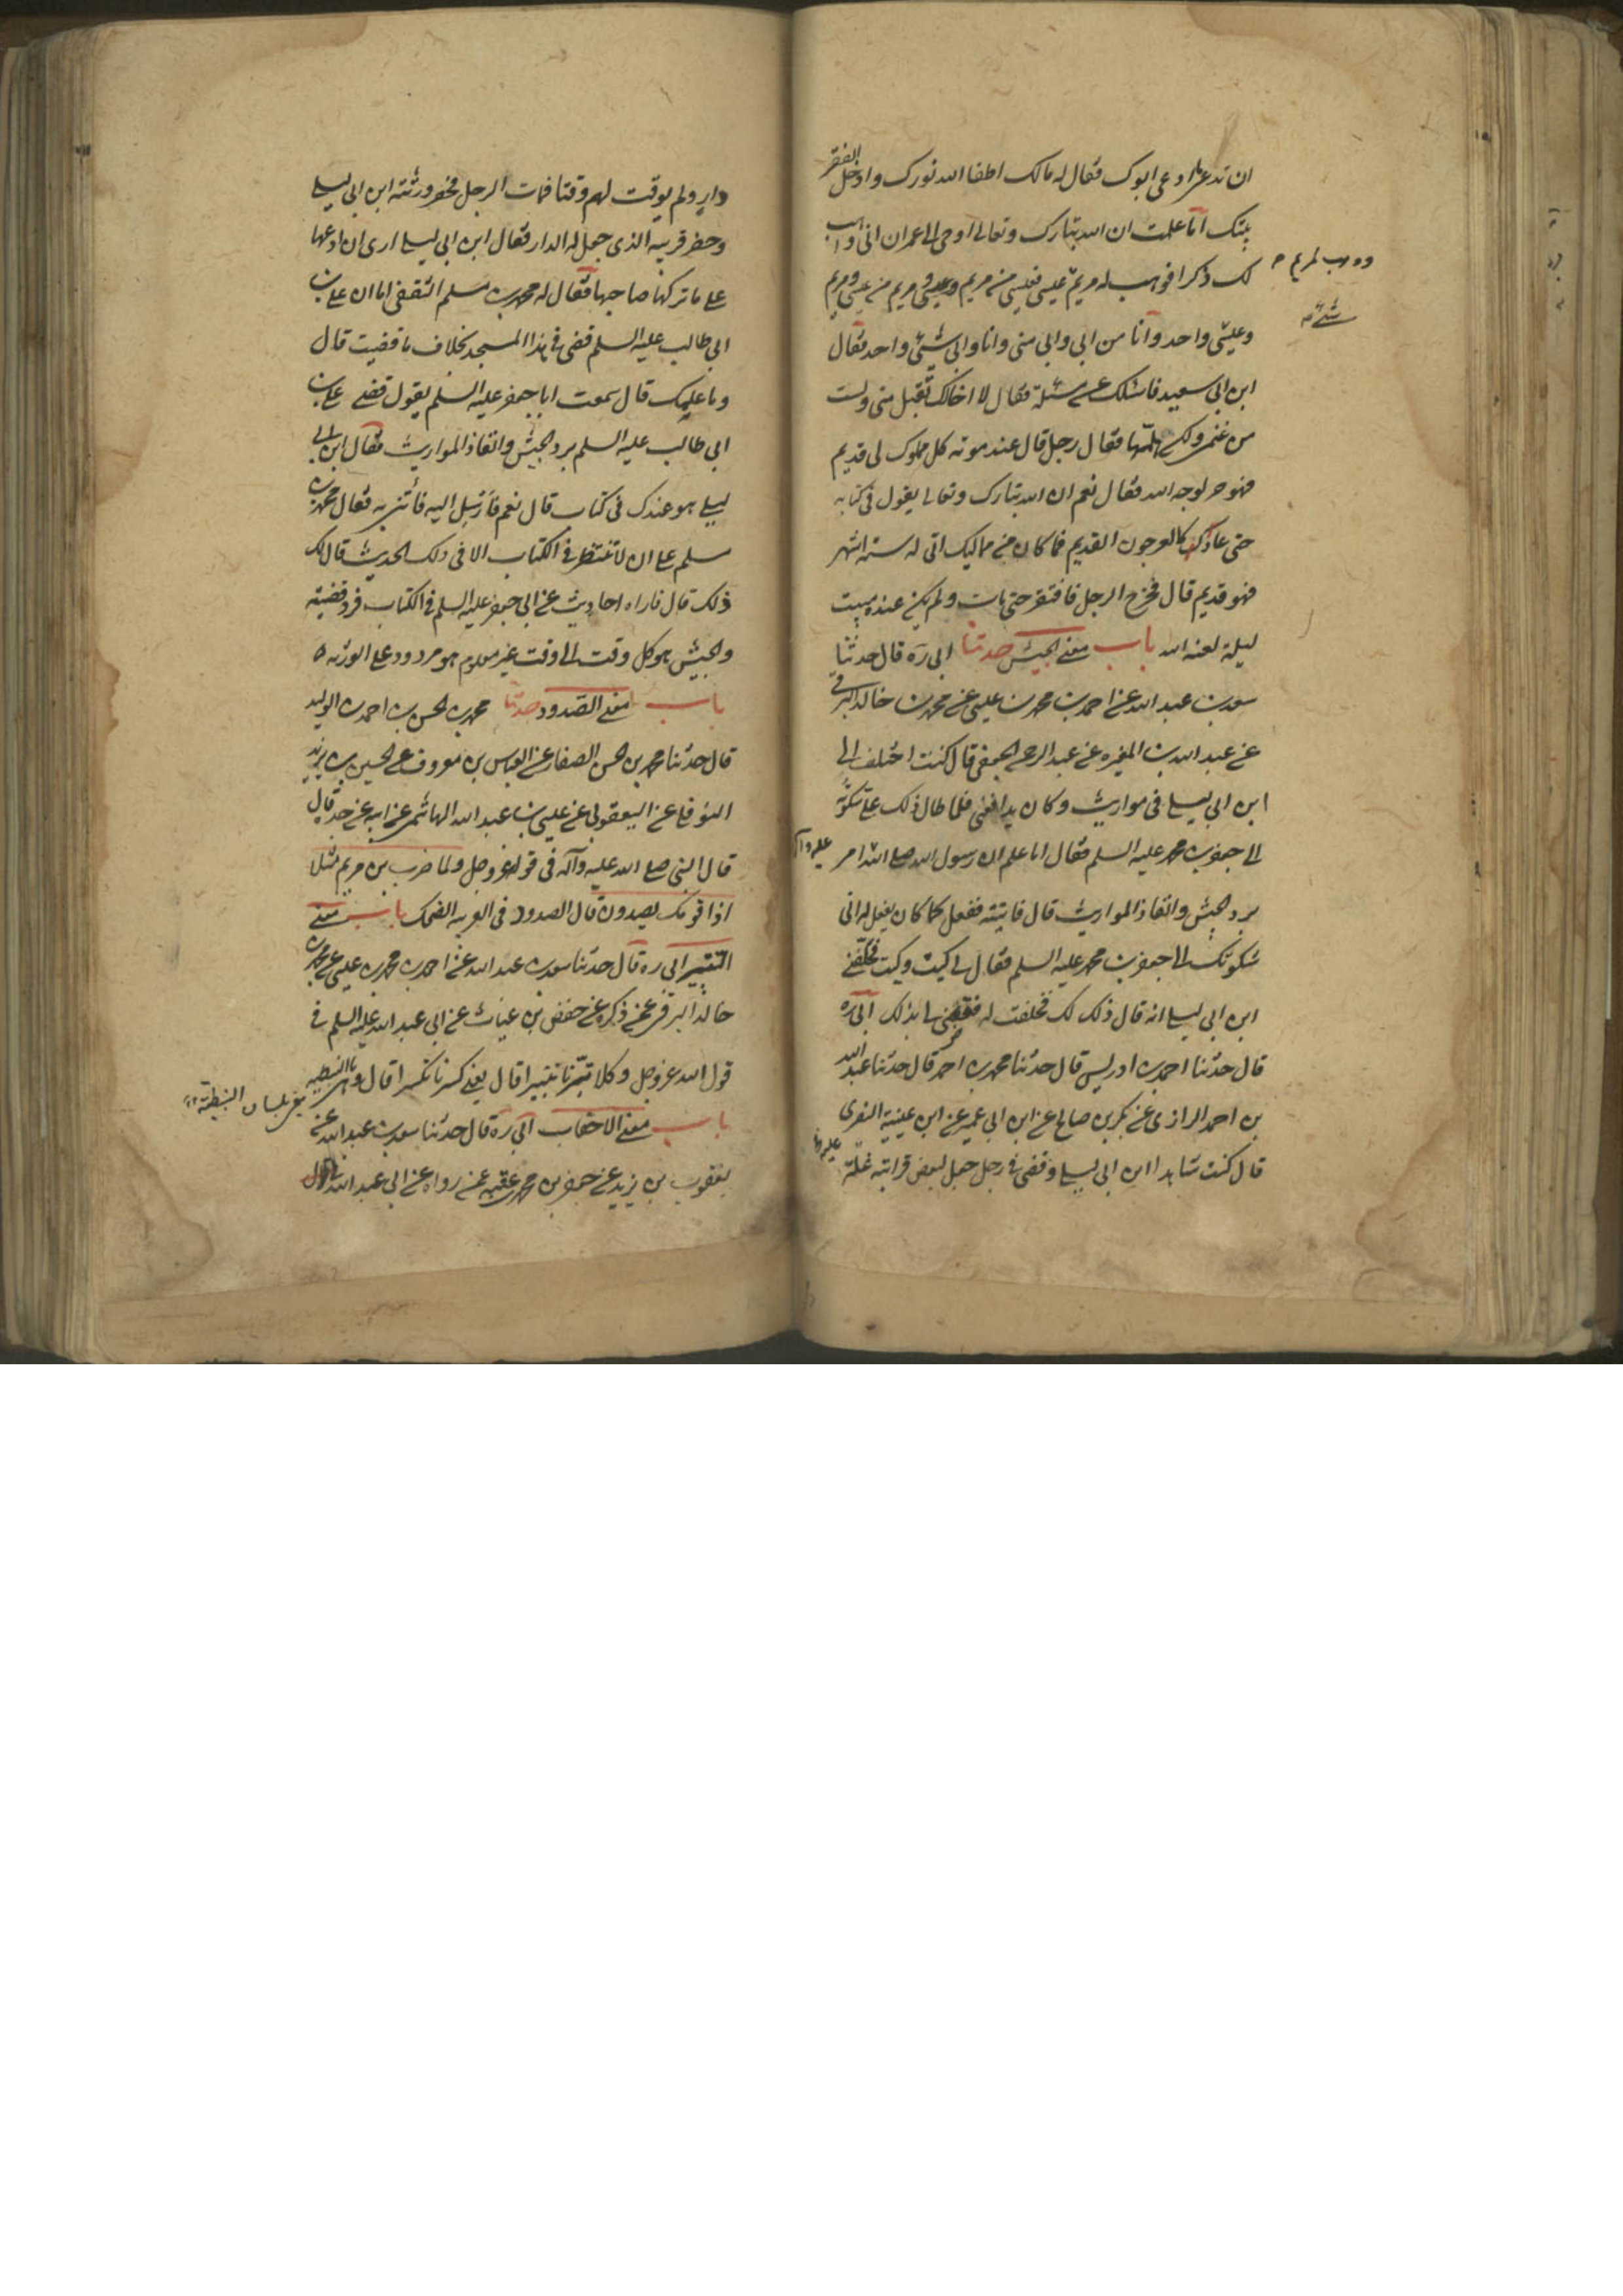 ان تدعی ما ادعی ابوک فقال له مالک اطفا الله نورک وادخل الفقر
بیتک اما علمت ان الله تبارک وتعالی اوحی الی عمران انی واهب
لک ذکرا فوهب له مریم عیسی فعیسی من مریم وعیسی ومریم من عیسی ومریم
ووهب لمریم
وعیسی واحد وانا من ابی وابی منی وانا وابی شیئ واحد فقال
شیء
ابن ابی سعید فاسئلک عن مسئلة فقال لا اخالک تقبل منی ولست
من غنمی ولکن هلمها فقال رجل قال عند موته کل مملوک لی قدیم
فهو حر لوجه الله فقال نعم ان الله تبارک وتعالی یقول فی کتابه
حتی عاد کالعرجون القدیم فما کان من ممالیک اتی له ستة اشهر
فهو قدیم قال فخرج الرجل فافتقر حتی مات ولم یکن عنده مبیت
لیلة لعنه الله باب معنی الحبیس حدثنا ابی ره قال حدثنا
سعد بن عبد الله عن احمد بن محمد بن عیسی عن محمد بن خالد البرقی
عن عبد الله بن المغیره عن عبد الرحمن الجعفی قال کنت اختلف الی
ابن ابی لیلی فی مواریث وکان یدافعنی فلما طال ذلک علی شکوته
الی جعفر بن محمد علیه السلم فقال اما علم ان رسول الله صلی الله امر
علیه وآله
برد الحبیس وانفاذ المواریث قال فاتیته ففعل کما کان یفعل له انی
شکوتک الی جعفر بن محمد علیه السلم فقال لی کیت وکیت فحلفنی
ابن ابی لیلی انه قال ذلک لک فحلفت له فقضی لی بذلک ابی ره
قال حدثنا احمد بن ادریس قال حدثنا محمد بن احمد قال حدثنا عبد الله
بن احمد الرازی عن بکر بن صالح عن ابن ابی عمیر عن ابن عیینة البصری
قال کنت شاهدا ابن ابی لیلی وقضی فی رجل جعل لبعض قرابته غلة
دار ولم یوقت لهم وقتا فمات الرجل فحضر ورثته ابن ابی لیلی
وحضر قریبه الذی جعل له الدار فقال ابن ابی لیلی اری ان ادعها
علی ما ترکها صاحبها فقال له محمد بن مسلم الثقفی اما ان علی بن
ابی طالب علیه السلم قضی فی هذا المسجد بخلاف ما قضیت قال
وما علمک قال سمعت ابا جعفر علیه السلم یقول قضی علی بن
ابی طالب علیه السلم برد الحبیس وانفاذ المواریث فقال ابن ابی
لیلی هو عندک فی کتاب قال نعم قال فارسل الیه فأتنی به فقال محمد بن
مسلم علی ان لا تنظر فی الکتاب الا فی ذلک الحدیث قال لک
ذلک قال فاراه احادیث عن ابی جعفر علیه السلم فی الکتاب فرد قضیته
والحبیس هو کل وقت الی وقت غیر معلوم هو مردود علی الورثه
باب معنی الصدود حدثنا محمد بن الحسن بن احمد بن الولید
قال حدثنا محمد بن الحسن الصفار عن العباس بن معروف عن الحسین بن یزید
النوفلی عن الیعقوبی عن عیسی بن عبد الله الهاشمی عن ابیه عن جده قال
قال النبی صلی الله علیه وآله فی قوله عز وجل ولما ضرب بن مریم مثلا
اذا قومک یصدون قال الصدود فی العربیه الضحک باب معنی
التتبیر ابی ره قال حدثنا سعد بن عبد الله عن احمد بن محمد بن عیسی عن محمد بن
خالد البرقی عمن ذکره عن حفص بن غیاث عن ابی عبد الله علیه السلم فی
قول الله عز وجل وکلا تبرنا تتبیرا قال یعنی کسرنا تکسیرا قال وهی بالنبطیه
بلسان النبطیة
باب معنی الاحقاب ابی ره قال حدثنا سعد بن عبد الله عن
یعقوب بن یزید عن جعفر بن محمد بن عقبه عمن رواه عن ابی عبد الله